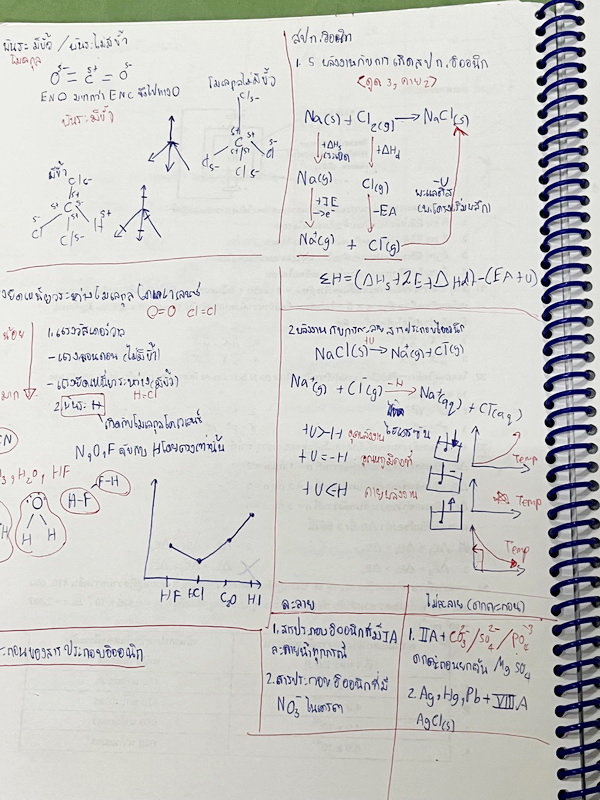 พันธะมีขั้ว / พันธะไม่มีขั้ว
โมเลกุล
δ- δ+ δ-
O = C = O
EN O มากกว่า EN C
พันธะมีขั้ว
โมเลกุลไม่มีขั้ว
Cl δ-
δ+
C
Cl δ-
Cl δ-
Cl
δ-
มีขั้ว
Cl δ-
δ+
C
δ-
Cl
Cl δ-
H δ+
ยึดเหนี่ยวระหว่างโมเลกุลโคเวเลนซ์
O=O Cl=Cl
น้อย
มาก
1. แรงวัลเดอร์วาล
- แรงลอนดอน (ไม่มีขั้ว)
- แรงยึดเหนี่ยวระหว่าง (มีขั้ว)
H-Cl
2. พันธะ H
เกิดกับโมเลกุลโคเวเลนซ์
N, O, F จับกับ H โดยตรงเท่านั้น
H₂O, HF
O
H H
H-F
F-H
HF HCl HI
ของสารประกอบไอออนิก
สปก.ไอออนิก
1. 5 พลังงานกับการเกิดสปก.ไอออนิก
<ดูด 3, คาย 2>
Na(s) + Cl₂(g) → NaCl(s)
+ΔHs
+ΔHd
Na(g)
Cl(g)
+IE
→e⁻
-EA
-U
พ.แลตทิส
Na⁺(g) + Cl⁻(g)
ΣH = (ΔHs + IE + ΔHd) - (EA + U)
2. พลังงานกับการละลายสารประกอบไอออนิก
NaCl(s) +U → Na⁺(g) + Cl⁻(g)
Na⁺(g) + Cl⁻(g) -H → Na⁺(aq) + Cl⁻(aq)
ไฮเดรชัน
+U>-H ดูดพลังงาน
Temp
+U=-H อุณหภูมิคงที่
Temp
+U<-H คายพลังงาน
Temp
ละลาย
1. สารประกอบไอออนิกที่มี IA
ละลายน้ำทุกกรณี
2. สารประกอบไอออนิกที่มี
NO₃⁻
ไม่ละลาย (ตกตะกอน)
1. IIA + CO₃²⁻/SO₄²⁻/PO₄³⁻
ตกตะกอนยกเว้น MgSO₄
2. Ag, Hg, Pb + VIIA
AgCl(s)